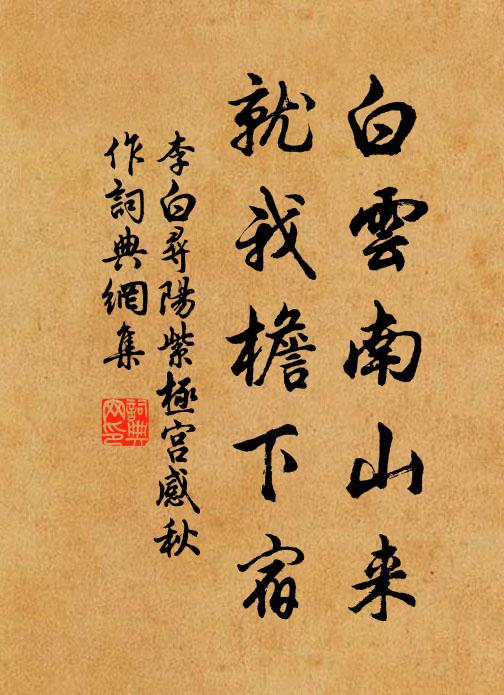 白雲南山来
就我檐下宿
李白尋陽紫極宮感秋
作詞典網集
詞典
网印